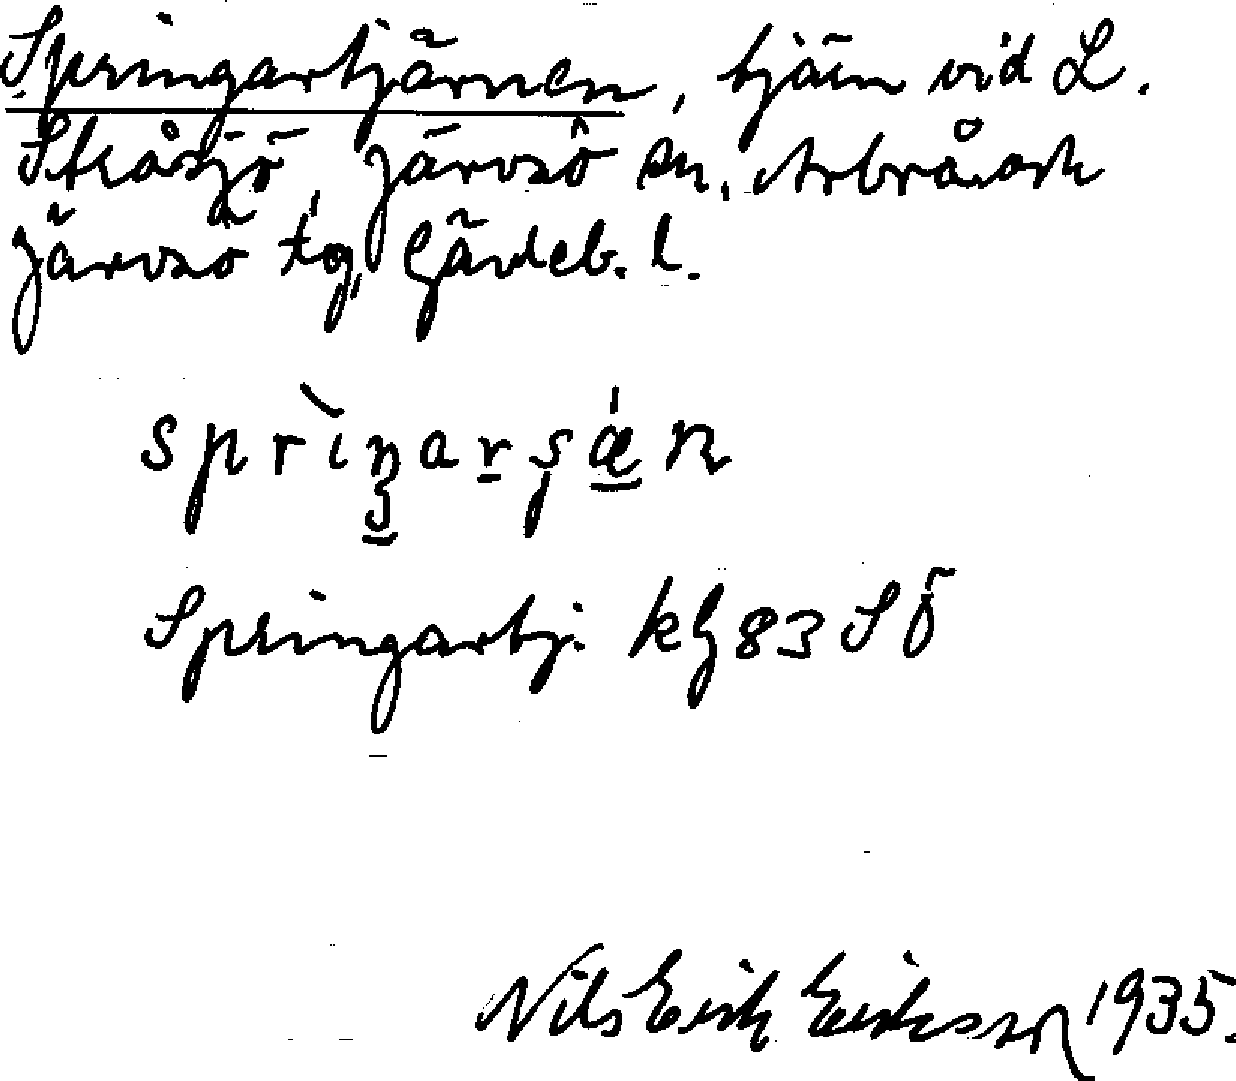 Springartjärnen, tjärn vid L.
Stråsjö, Järvsö sn, Arbrå och
Järvsö tg, Gävleb. l.
sprìŋarʂǽn
Springartj. kg 83 SÖ
Nils Erik Eriksson 1935.